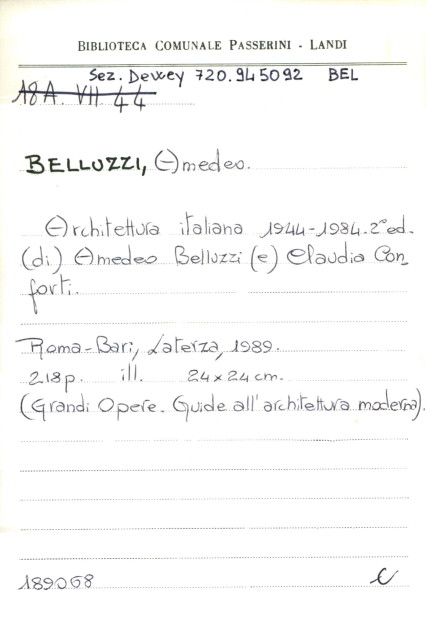 BIBLIOTECA COMUNALE PASSERINI - LANDI
Sez. Dewey 720.945092 BEL
A8A. VII. 44
BELLUZZI, Amedeo.
Architettura italiana 1944-1984. 2ª ed.
(di) Amedeo Belluzzi (e) Claudia Con_
forti.
Roma-Bari, Laterza, 1989.
218p. ill. 24x24 cm.
(Grandi Opere. Guide all'architettura moderna).
189068
C